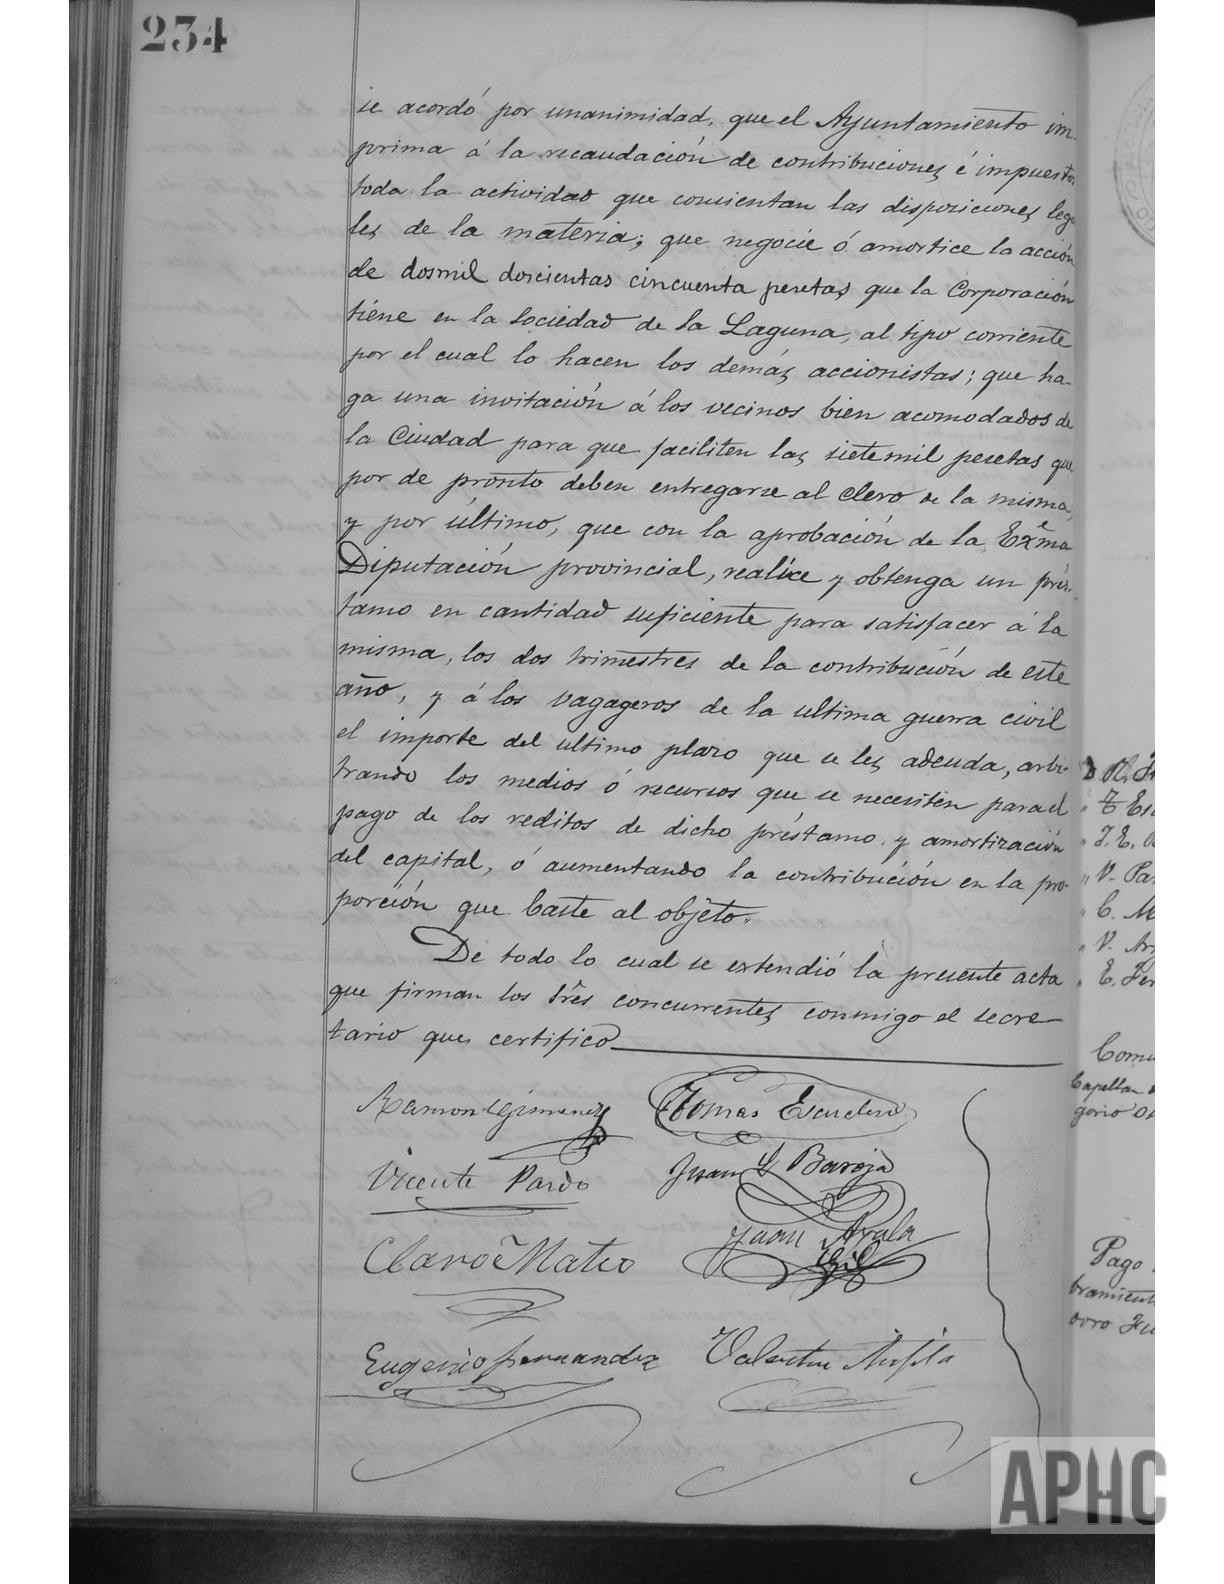 234
se acordó por unanimidad, que el Ayuntamiento im-
prima á la recaudación de contribuciones é impuestos
toda la actividad que consientan las disposiciones lega-
les de la materia; que negocie ó amortice la acción
de dosmil doscientas cincuenta pesetas que la Corporación
tiene en la Sociedad de la Laguna, al tipo corriente
por el cual lo hacen los demás accionistas; que ha-
ga una invitación á los vecinos bien acomodados de
la Ciudad para que faciliten las sietemil pesetas que
por de pronto deben entregarse al Clero de la misma,
y por último, que con la aprobación de la Exma
Diputación provincial, realice y obtenga un prés-
tamo en cantidad suficiente para satisfacer á la
misma, los dos trimestres de la contribución de este
año, y á los vagageros de la ultima guerra civil
el importe del ultimo plazo que se les adeuda, arbi-
trando los medios ó recursos que se necesiten para el
pago de los reditos de dicho préstamo y amortización
del capital, ó aumentando la contribución en la pro-
porción que baste al objeto.
De todo lo cual se extendió la presente acta
que firman los Sres concurrentes conmigo el secre-
tario que certifico
Ramon Gimenez Tomas Escudero
Vicente Pardo Juan G Baroja
Claro Mateo Juan Ayala
Gil
Eugenio Fernandez Valentin
D. R.
" T. Esc
" V. Pa
" C. M
" V. Ar
" E. Fer
Capellan
gorio
Pago
bramient
APHC